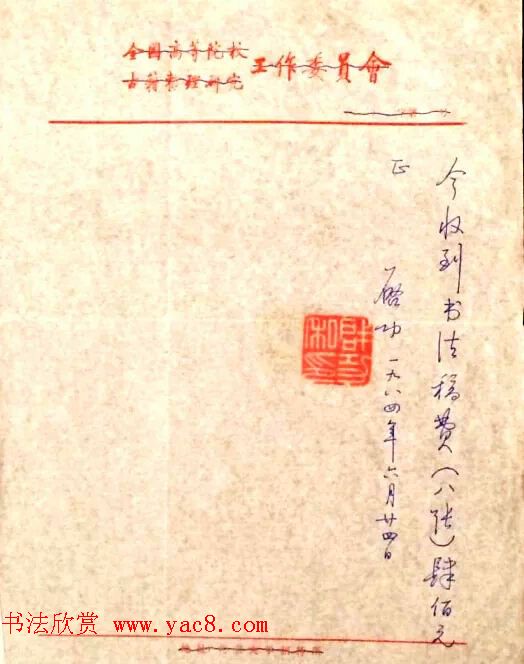 全国高等院校
古籍整理研究
工作委員會
今收到书法稿费（八张）肆佰元
正
启功 一九八四年六月廿四日
书法欣赏 www.yac8.com